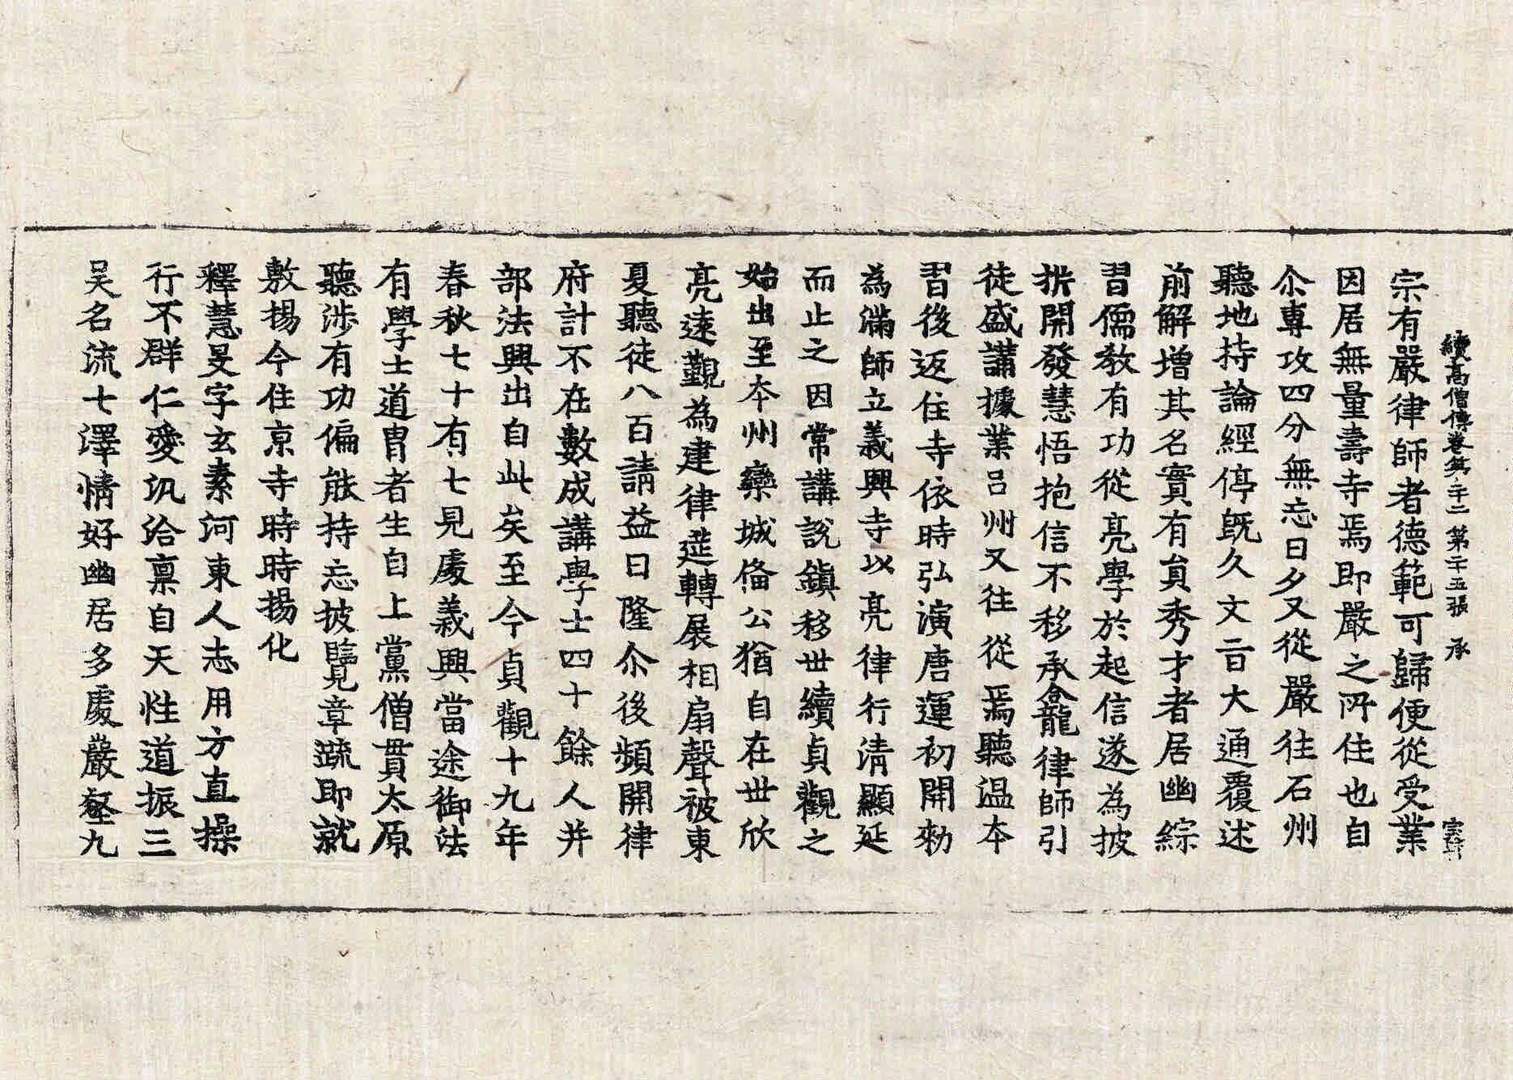 續高僧傳卷第二十二 第二十五張 承
宗有嚴律師者德範可歸便從受業
因居無量壽寺焉即嚴之所住也自
尒專攻四分無忘日夕又從嚴往石州
聽地持論經停旣久文旨大通覆述
前解增其名實有貟秀才者居幽綜
習儒教有功從亮學於起信遂為披
㭊開發慧悟抱信不移承龕律師引
徒盛講據業呂州又往從焉聽温本
習後返住寺依時弘演唐運初開勑
為滿師立義興寺以亮律行清顯延
而止之因常講說鎮移世續貞觀之
始出至夲州欒城俻公猶自在世欣
亮遠覲為建律莚轉展相扇聲被東
夏聽徒八百請益日隆尒後頻開律
府計不在數成講學士四十餘人并
部法興出自此矣至今貞觀十九年
春秋七十有七見處義興當途御法
有學士道胄者生自上黨僧貫太原
聽涉有功偏能持忘披覽章疏即就
敷揚今住京寺時時揚化
釋慧旻字玄素河東人志用方直操
行不群仁愛汎洽禀自天性道振三
吴名流七澤情好幽居多處巖壑九